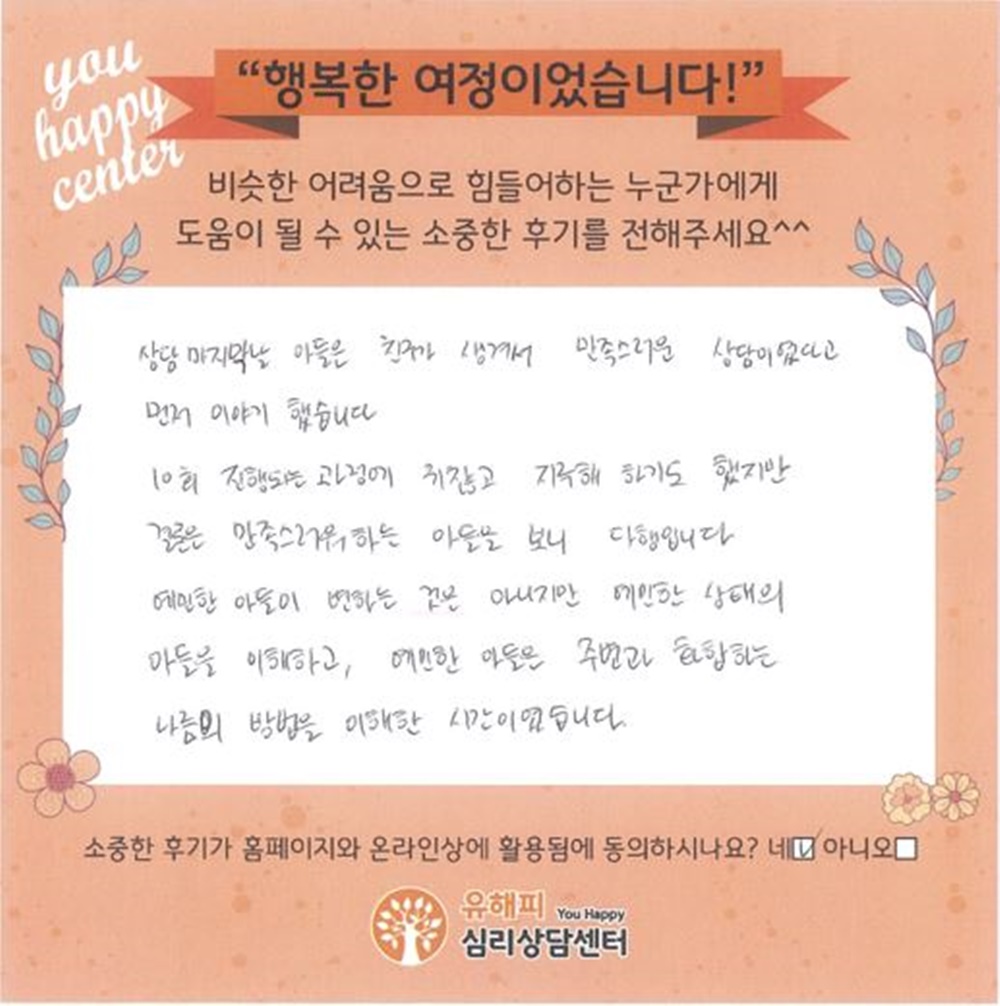 you
happy
center
“행복한 여정이었습니다!”
비슷한 어려움으로 힘들어하는 누군가에게
도움이 될 수 있는 소중한 후기를 전해주세요^^
상담 마지막날 아들은 친구가 생겨서 만족스러운 상담이였다고
먼저 이야기 했습니다
10회 진행되는 과정에 귀찮고 지루해 하기도 했지만
결론은 만족스러워하는 아들을 보니 다행입니다
예민한 아들이 변하는 것은 아니지만 예민한 상태의
아들을 이해하고, 예민한 아들은 주변과 화합하는
나름의 방법을 이해한 시간이였습니다.
소중한 후기가 홈페이지와 온라인상에 활용됨에 동의하시나요? 네☑ 아니오☐
유해피 You Happy
심리상담센터